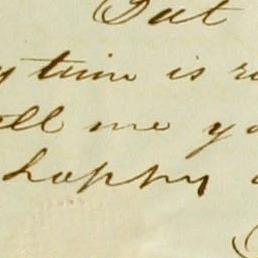 But
y time is r
ll me yo
happy